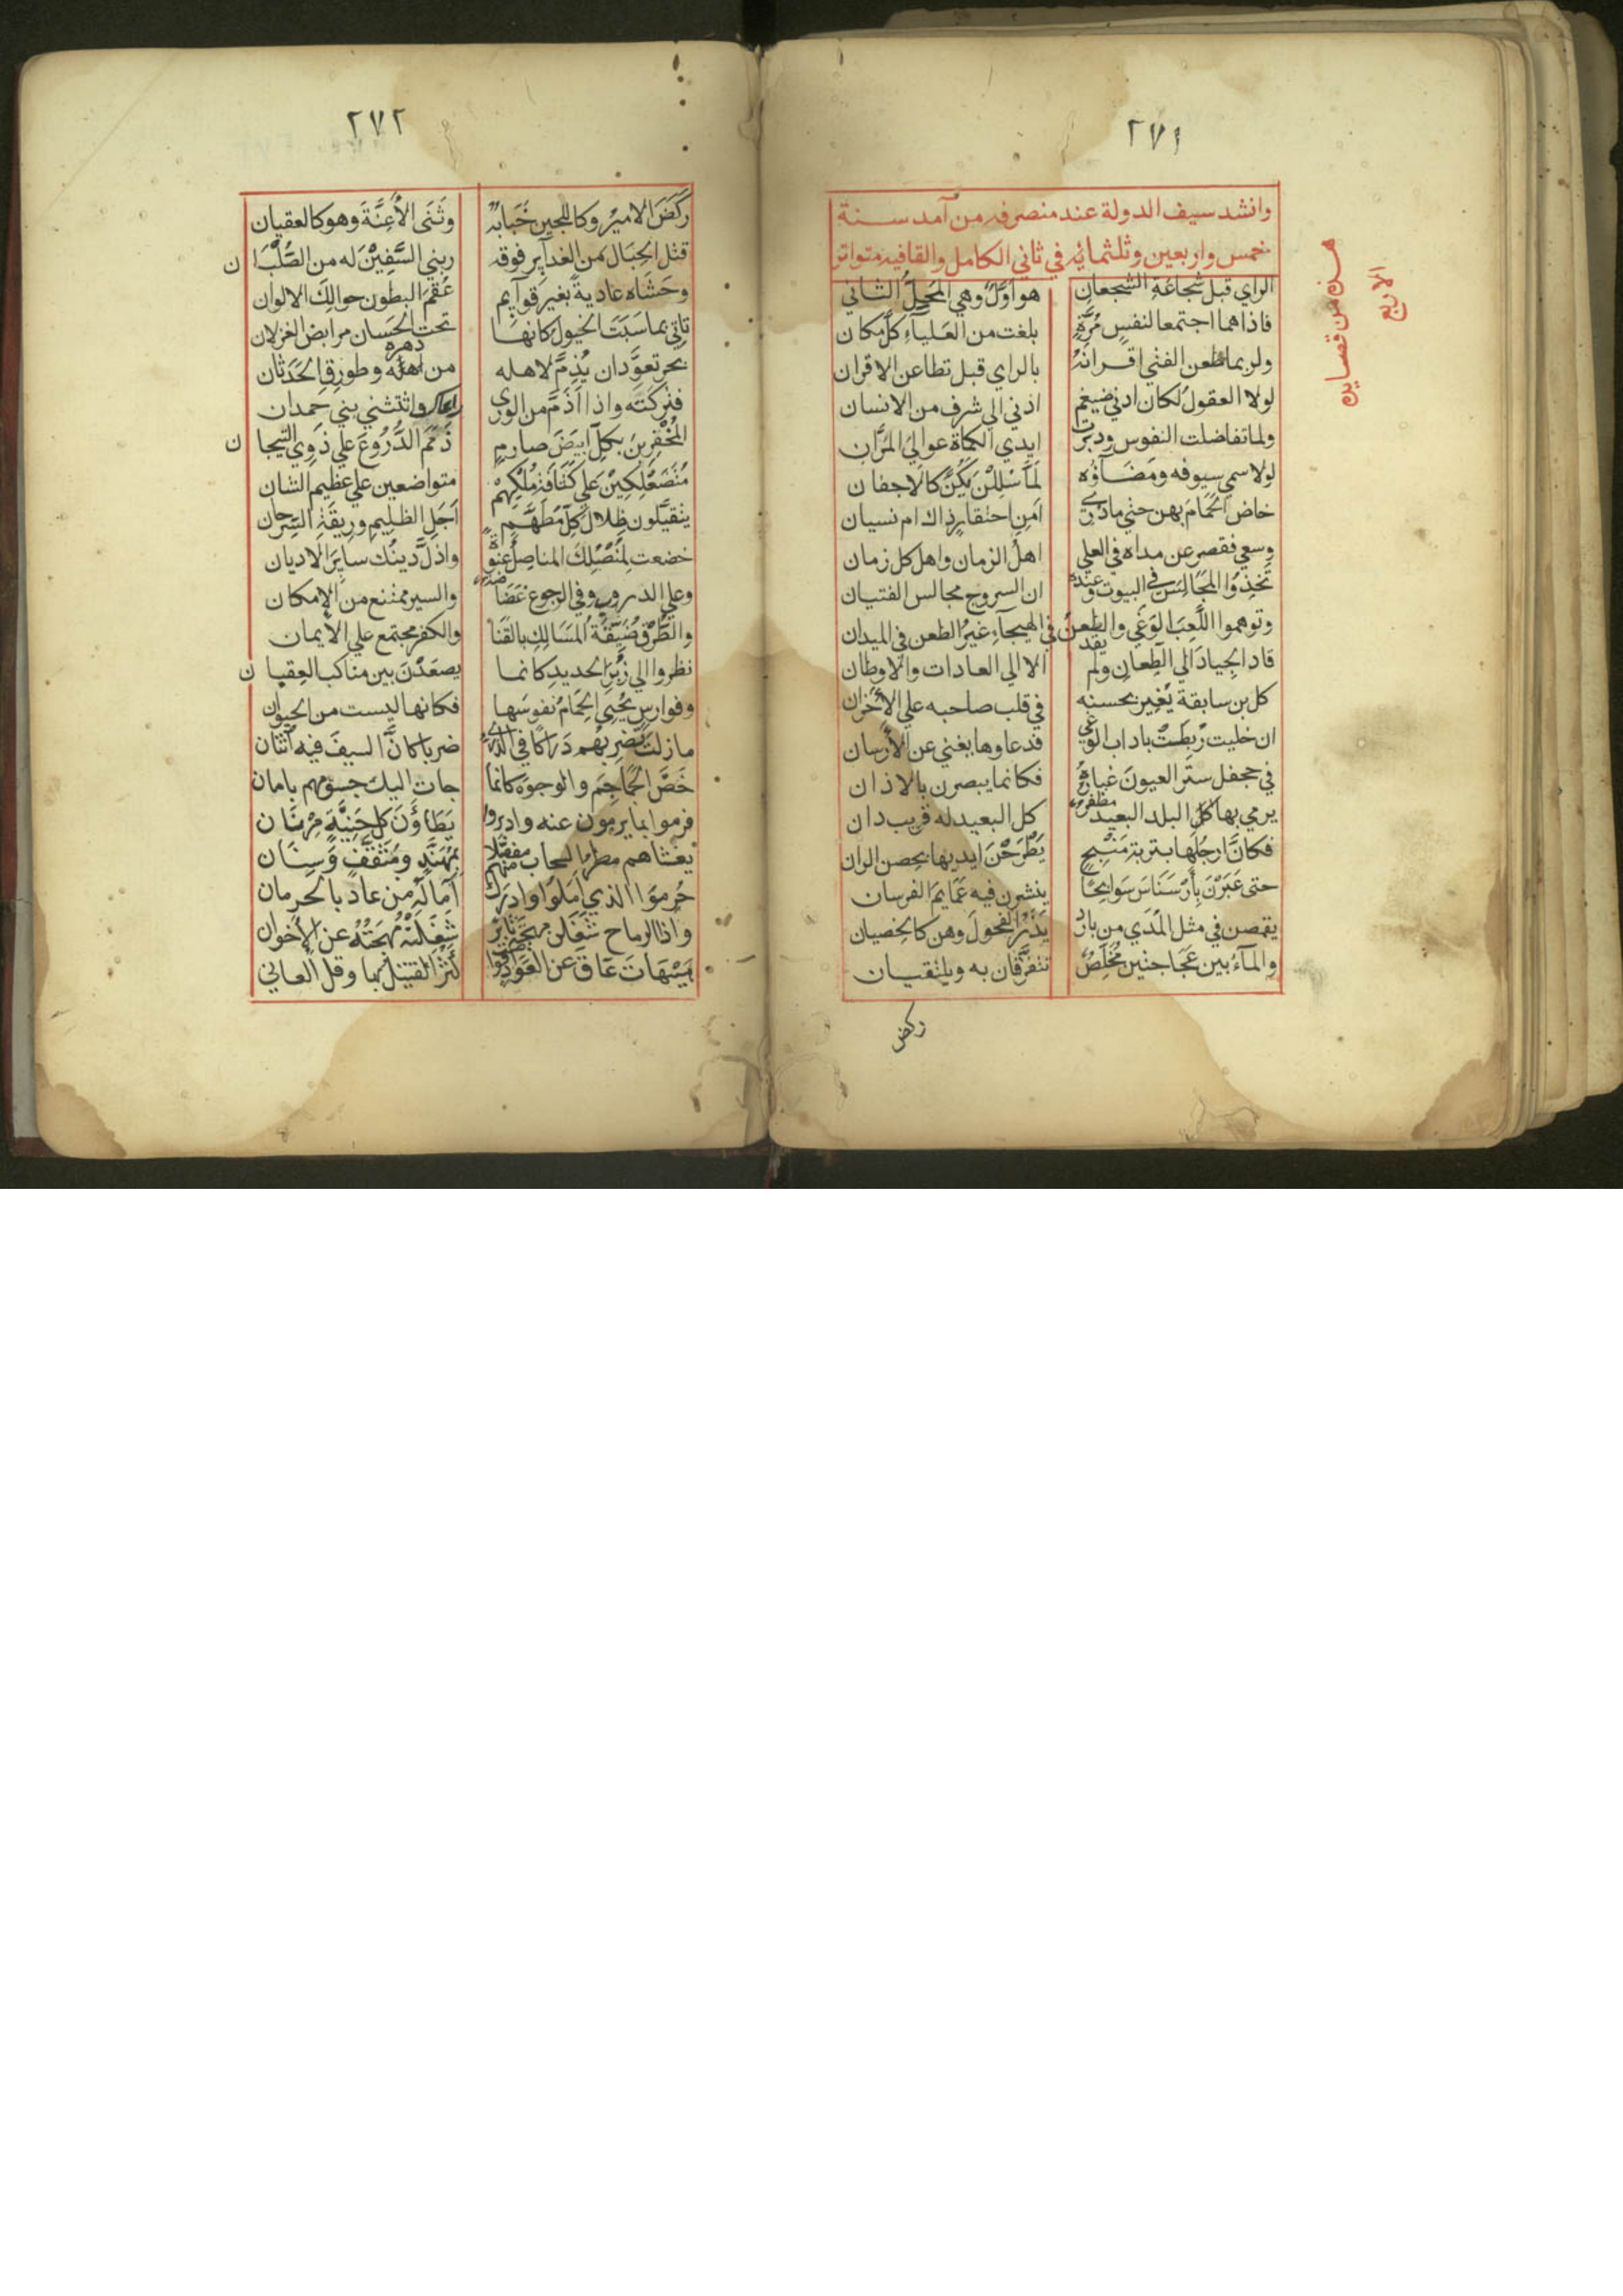 ٢٧١
وانشد سيف الدولة عند منصرفه من آمد سنة
خمس واربعين وثلثمائه في ثاني الكامل والقافيه متواتر
هذه من قصايده
الاربع
الراي قبل شجاعة الشجعان هو اوّل وهي المحل الثاني
فاذا هما اجتمعا لنفس مُرَّةٍ بلغت من العلياء كل مكان
ولربما طعن الفتي اقرانه بالراي قبل تطاعن الاقران
لولا العقول لكان ادني ضيغم ادني الي شرف من الانسان
ولما تفاضلت النفوس ودبرت ايدي الكماة عوالي المران
لولا سمي سيوفه ومضاؤه لما سللن لكن كالاجفان
خاض الحمام بهن حتي ما دري امن احتقار ذاك ام نسيان
وسعي فقصر عن مداه في العلي اهل الزمان واهل كل زمان
تخذوا المجالس في البيوت وعنده ان السروج مجالس الفتيان
وتوهموا اللعب الوغي والطعن في الهيجاء غير الطعن في الميدان
قاد الجياد الي الطعان ولم يقد الا الي العادات والاوطان
كل بن سابقة يغير بحسنه في قلب صاحبه علي الاحزان
ان خليت ربطت باداب الوغي فدعاوها يغني عن الارسان
في جحفل ستر العيون غباره فكانما يبصرن بالاذان
يرمي بها البلد البعيد مظفر كل البعيد له قريب دان
فكان ارجلها بتربة منبج يطرحن ايديها بحصن الران
حتى عبرن بارسناس سوابحا ينشرن فيه عمايم الفرسان
يقمصن في مثل المدي من بارد يذر الفحول وهن كالخصيان
والماء بين عجاجتين مخلص تتفرقان به ويلتقيان
ركض
٢٧٢
ركض الامير وكاللجين حبابه وثنى الأعنة وهو كالعقيان
فتل الحبال من الغداير فوقه وبني السفين له من الصلبان
وحشاه عادية بغير قوايم عقم البطون حوالك الالوان
تاتي بما سبت الخيول كانها تحت الحسان مرابض الغزلان
بحر تعود ان يذم لاهله من دهره وطوارق الحدثان
فتركته واذا اذم من الوري راعاك واتثني بني حمدان
المخفرين بكل ابيض صارم ذمم الدروع علي ذوي التيجان
متصعلكين علي كثافة ملكهم متواضعين علي عظيم الشان
يتقيلون ظلال كل مطهم اجل الظليم وربقة السرحان
خضعت لمنصلك المناصل عنوة واذل دينك ساير الاديان
وعلي الدروب وفي الرجوع غضاضة والسير ممتنع من الامكان
والطرق ضيقة المسالك بالقنا والكفر مجتمع علي الايمان
نظروا الي زبر الحديد كانما يصعدن بين مناكب العقبان
وفوارس يحيي الحمام نفوسها فكانها ليست من الحيوان
ما زلت تضربهم دراكا في الذري ضربا كان السيف فيه اثنان
خص الجماجم والوجوه كانما جات اليك جسومهم بامان
فرموا بما يرمون عنه وادبروا يطاؤن كل حنية مرنان
يغشاهم مطر السحاب مفصلا بمهند ومثقف وسنان
حرموا الذي املوا وادرك منهم آماله من عاد بالحرمان
واذا الرماح شغلن مهجة ثاير شغلته مهجته عن الأخوان
هيهات عاق عن العواد قواضب كثر القتيل بها وقل العاني